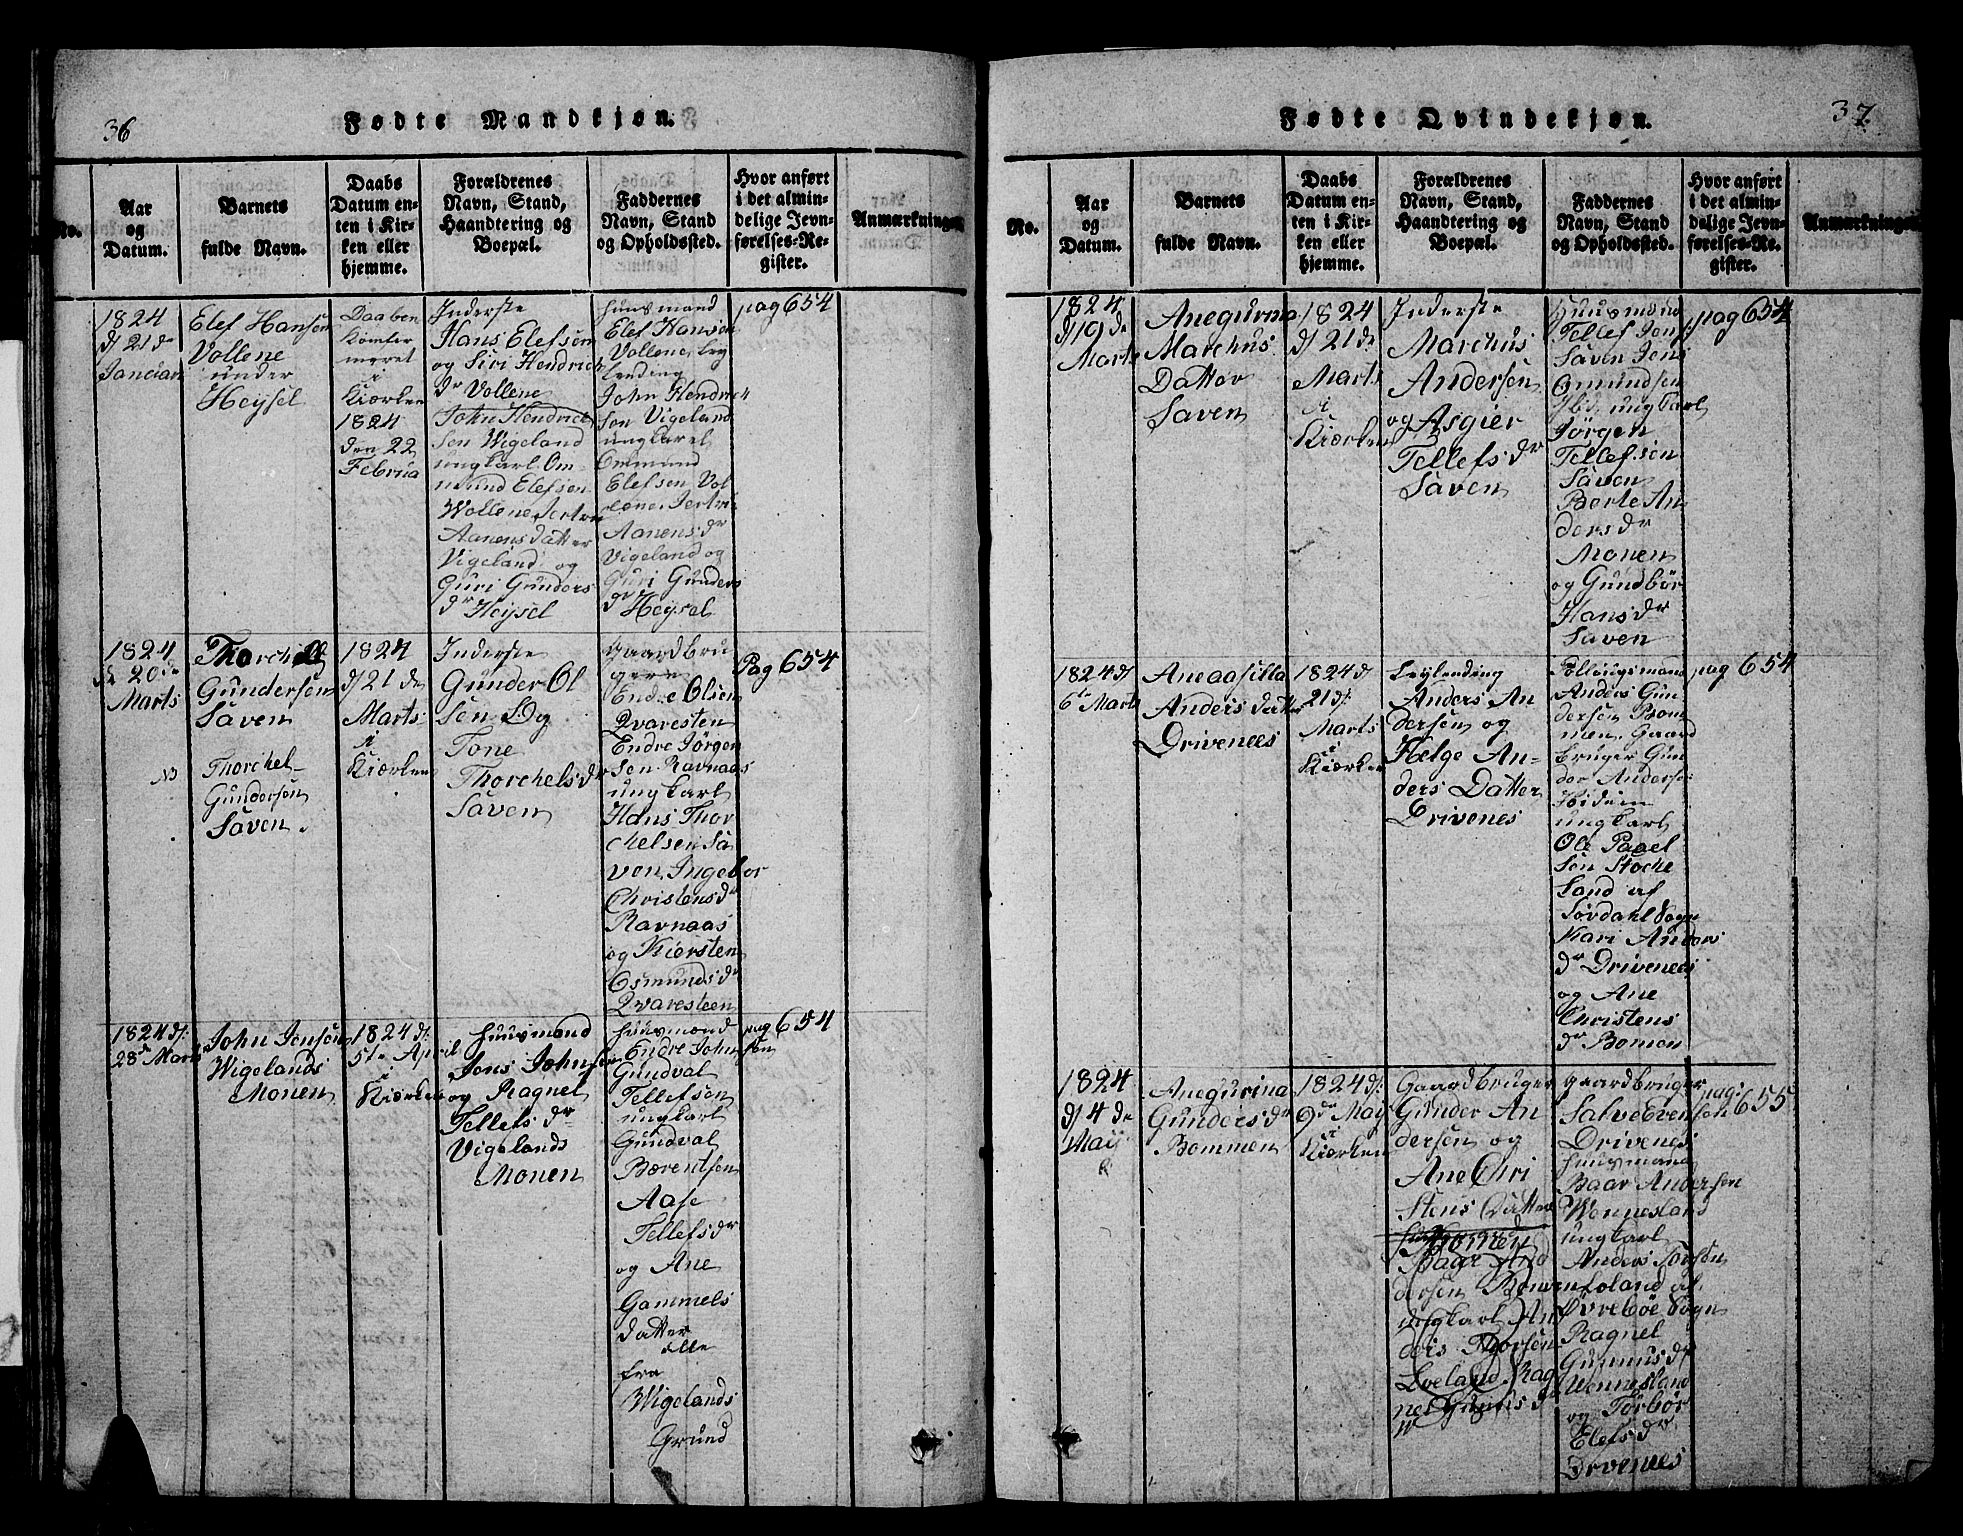 36
Fødte Mandkjøn.
No.
Aar
og
Datum.
Barnets
fulde Navn.
Daabs
Datum en-
ten i Kir-
ken eller
hjemme.
Forældrenes
Navn, Stand,
Haandtering og
Boepæl.
Faddernes
Navn, Stand
og Opholdssted.
Hvor anført
i det almin-
delige Jevn-
førelses-Re-
gister.
Anmærkninger
1824
d 21 de
Januar
Elef Hansen
Vollene
under
Heysel
Daaben
Komfer
meret
i
Kiørken
1824
den 22
Februa
Inderste
Hans Elefsen
og Siri Hendrich
dr Vollene
John Hendrich
sen Wigeland
ungkarl Om-
mund Elefsen
Wollene Jertru
Aanensdatter
Vigeland og
Guri Gunders
dr Heysel
huusmand
Elef Hansen
Vollene, ley
lending
John Hendrich
sen Vigeland
ungkarel
Ommund
Elefsen Vol
lene, Jertru
Aanens dr
Vigeland og
Guri Gunders
dr Heysel
pag 654
1824
d 20de
Marts
Thorchell
Gundersen
Saven
NB
Thorchel
Gundersen
Saven.
1824
d 21 de
Marts
i
Kiørken
Inderste
Gunder Ol
sen Og
Tone
Thorchels dr
Saven
gaardbru
gere
Endre Olsen
Qvaresten
Endre Jørgen
sen Ravnaas
ungkarl
Hans Thor
chelsen Sa
ven, Ingebor
Christens dr
Ravnaas
og Kiersten
Osmunds dr
Qvaresteen
Pag 654
1824 d.
28de Marts
John Jensen
Wigelands
Monen
1824 d.
5te April
i
Kiørken
huusmand
Jens Johnsen
og Ragnel
Tellefs dr
Vigelands
Monen
huusmand
Endre John
sen
Gundval
Tellefsen
ungkarl
Gundval
Bærentsen
Aase
Tellefs dr
og Ane
Gammels
datter
alle
fra
Wigelands
Grund
pag 654
37
Fødte Qvindekjøn.
No.
Aar
og
Datum.
Barnets
fulde Navn.
Daabs
Datum en-
ten i Kir-
ken eller
hjemme.
Forældrenes
Navn, Stand,
Haandtering og
Boepæl.
Faddernes
Navn, Stand
og Opholdssted.
Hvor anført
i det almin-
delige Jevn-
førelses-Re-
gister.
Anmærkninger
1824
d 19 de
Marts
Anegurina
Marchus
Datter
Saven
1824
d 21 de
Marts
i
Kiørken
Inderste
Marchus
Andersen
og Asgier
Tellefs dr
Saven
Huusmand
Tellef Jens
Saven Jens
Omundsen
Ibid, ungkarl
Jørgen
Tellefsen
Saven
Berte An
ders dr
Monen
og Gundbør
Hans dr
Saven
pag 654
1824 d
6te Marts
Aneaasilla
Andersdatter
Drivenees
1824 d
21 d.
Marts
i
Kiørken
Leylending
Anders An
dersen og
Helge An-
ders Datter
Drivenes
Anders Gun
dersen Bom
men, Gaard
bruger Gun
der Andersen
Ibidem
ungkarl
Ole Paael
sen Stoche
land af
Søvdahl Sogn
Kari Anders
dr Drivenees
og Ane
Christens
dr Bomen
pag 654
1824
d 4 de
May
Anegurina
Gunders dr
Bommen
1824 d.
9de May
i
Kiørken
Gaardbruger
Gunder An
dersen og
Ane Chri
stens Datter
Bomen
Baar And
dersen Bomen
ungkarl An
ders Thorsen
Loeland, Rag
nel Gunus d
gaardbruger
Salve Evensen
Drivenes
huusmand
Baar Andersen
Wenneslans
ungkarl
Anders Torsen
Loland af
Øvrebøe Sogn
Ragnel
Gunnus dr
Wennesland
og Torbør
Elefs dr
Drvenees
pag. 655